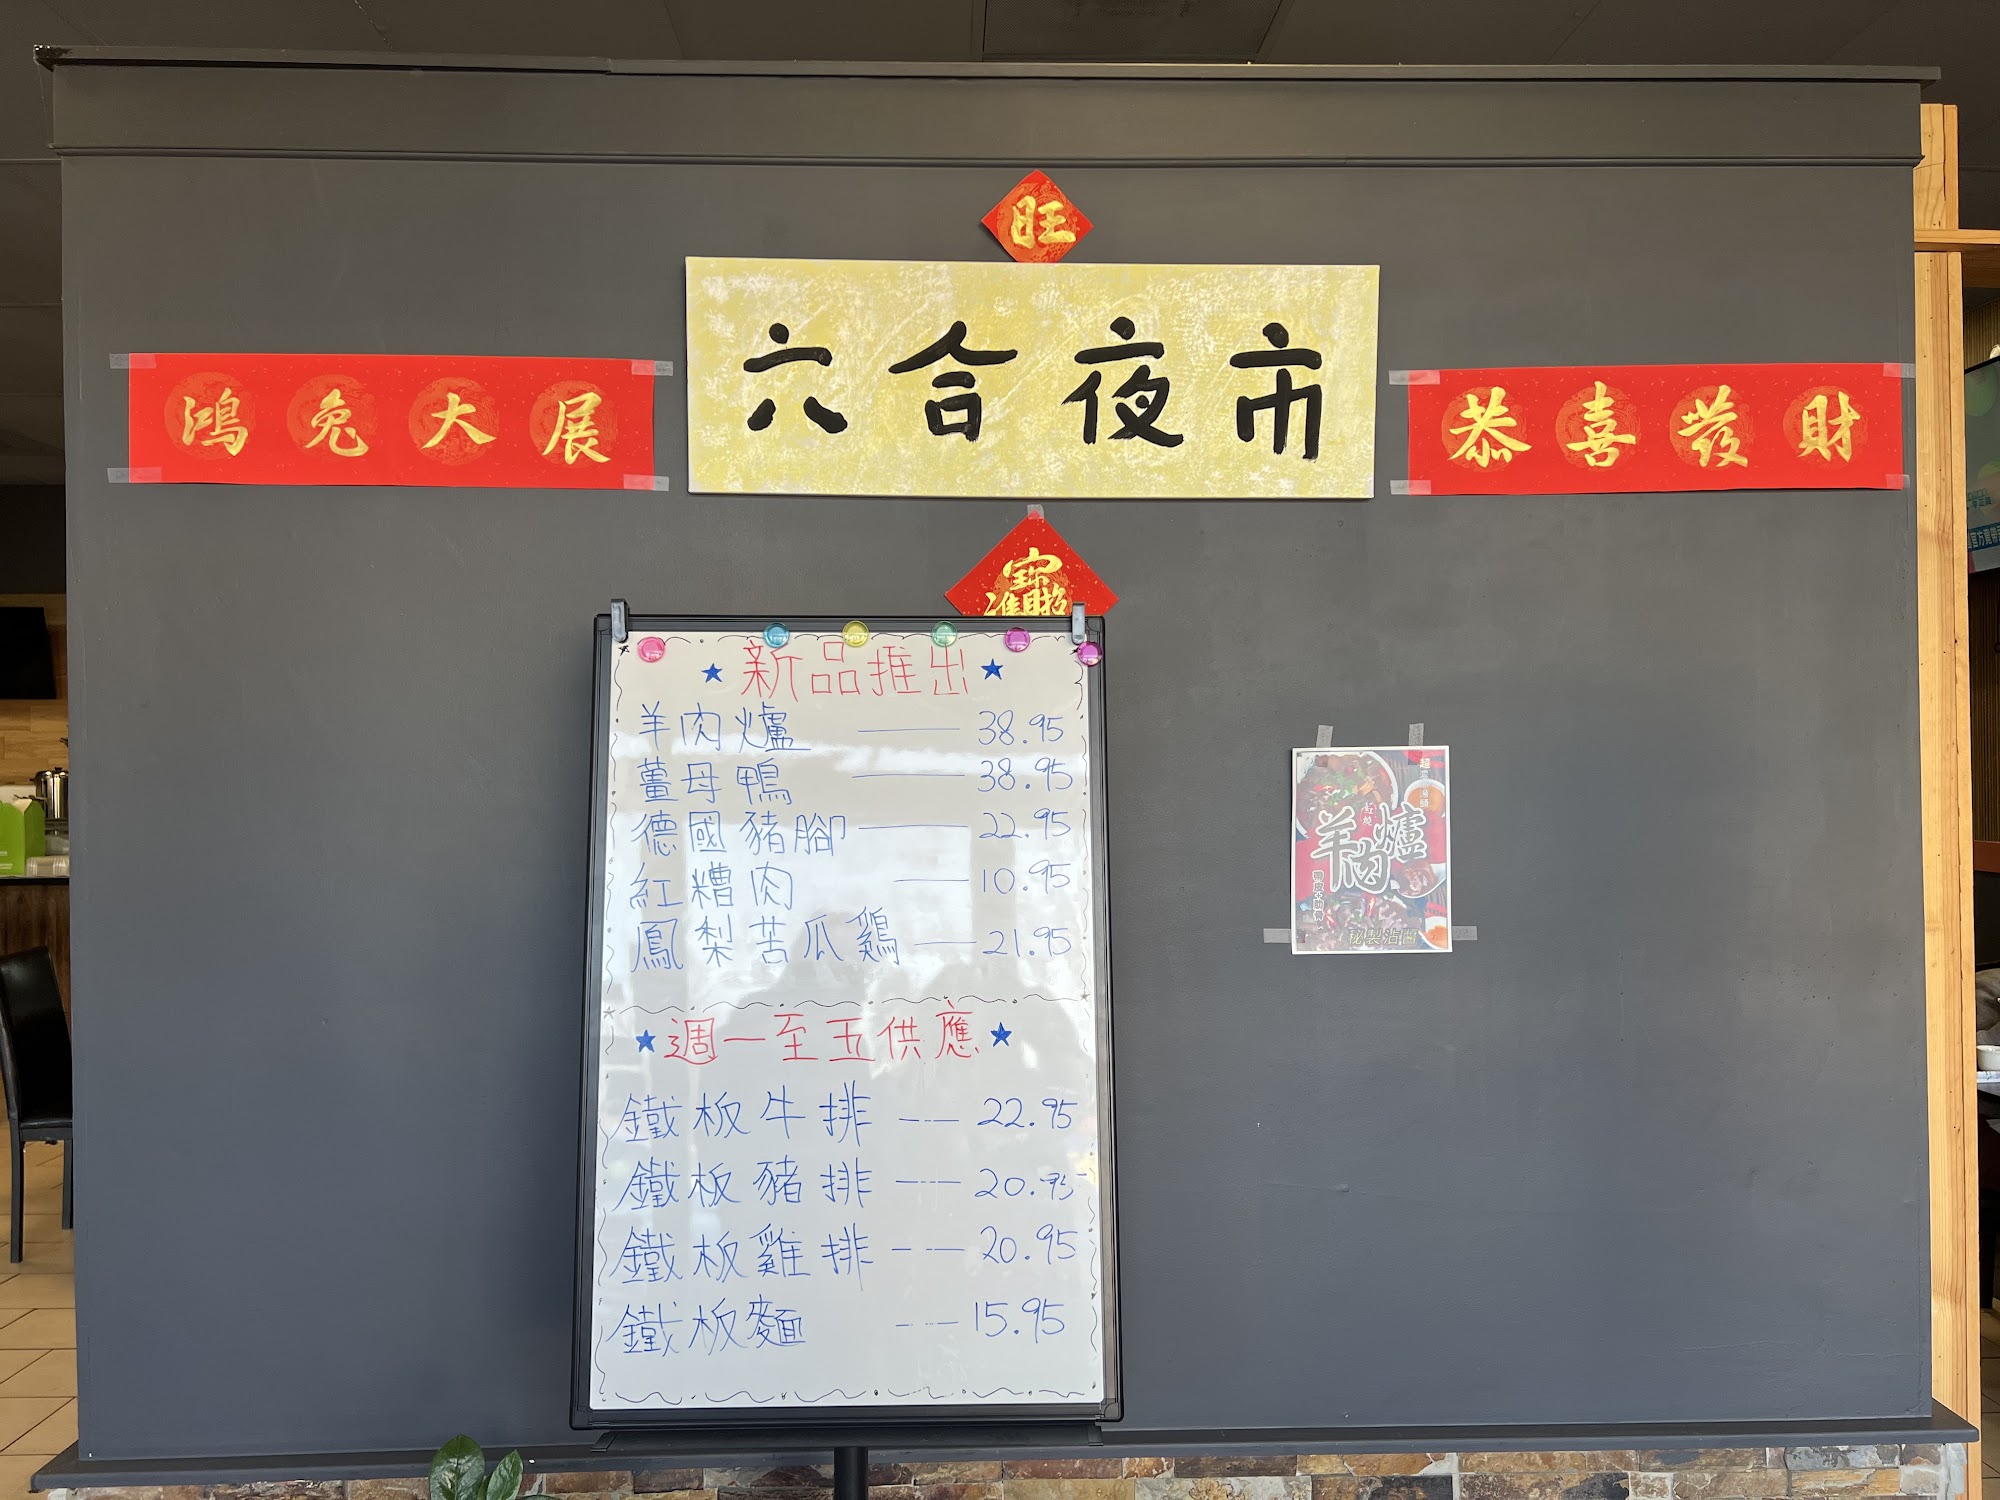 旺
六合夜市
鴻兔大展
恭喜發財
招財進寶
★新品推出★
羊肉爐 —— 38.95
薑母鴨 —— 38.95
德國豬腳 —— 22.95
紅糟肉 —— 10.95
鳳梨苦瓜鷄 —— 21.95
★週一至五供應★
鐵板牛排 --- 22.95
鐵板豬排 --- 20.95
鐵板雞排 --- 20.95
鐵板麵 --- 15.95
羊肉爐
秘製沾醬